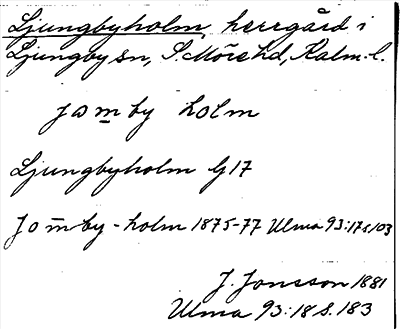 Ljungbyholm, herrgård i
Ljungby sn, S. Möre hd, Kalm. l.
jom̲by holm
Ljungbyholm G17
Jom̅by-holm 1875-77 Ulma 93:17 s103
J. Jonsson 1881
Ulma 93:18 S. 183